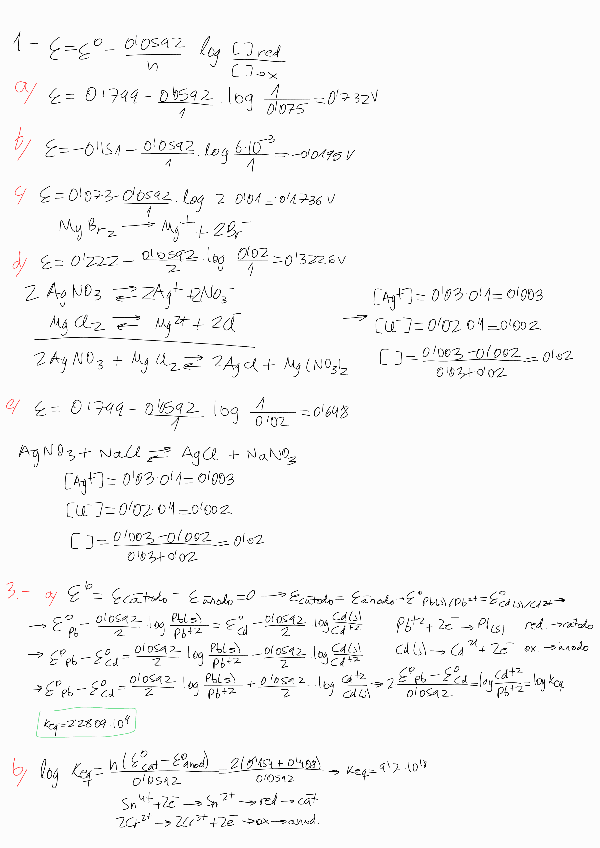 1- ε=ε⁰- 0'0592/n log [ ]red/[ ]ox
a) ε= 0'799 - 0'0592/1 · log 1/0'075 = 0'732V
b) ε= -0'151 - 0'0592/1 · log 6·10⁻³/1 = -0'0195V
c) ε=0'073-0'0592/1 · log 2 0'01=0'1736V
MgBr₂ → Mg⁺ + 2Br⁻
d) ε= 0'222 - 0'0592/2 · log 0'02/1 = 0'3226V
2AgNO₃ ⇌ 2Ag⁺ +2NO₃⁻
MgCl₂ ⇌ Mg²⁺ + 2Cl⁻
2AgNO₃ + MgCl₂ ⇌ 2AgCl + Mg(NO₃)₂
→ [Ag⁺] = 0'03·0'1=0'003
[Cl⁻]=0'02·0'1=0'002
[ ]= 0'003-0'002/0'03+0'02 = 0'02
e) ε= 0'799 - 0'0592/1 · log 1/0'02 = 0'698
AgNO₃ + NaCl ⇌ AgCl + NaNO₃
[Ag⁺]=0'03·0'1=0'003
[Cl⁻]=0'02·0'1=0'002
[ ]= 0'003-0'002/0'03+0'02 = 0'02
3.- a) ε⁰ = εcátodo - εánodo =0 → εcátodo = εánodo → ε⁰Pb(s)/Pb⁺²=ε⁰Cd(s)/Cd²⁺ →
→ ε⁰Pb - 0'0592/2 log Pb(s)/Pb⁺² = ε⁰Cd - 0'0592/2 log Cd(s)/Cd⁺² Pb⁺² + 2e⁻ → Pb(s) red. → cátodo
→ ε⁰Pb - ε⁰Cd = 0'0592/2 log Pb(s)/Pb⁺² - 0'0592/2 log Cd(s)/Cd⁺² Cd(s) → Cd²⁺ + 2e⁻ ox → ánodo
→ ε⁰Pb - ε⁰Cd = 0'0592/2 · log Pb(s)/Pb⁺² + 0'0592/2 · log Cd⁺²/Cd(s) → 2 ε⁰Pb - ε⁰Cd/0'0592 = log Cd⁺²/Pb⁺² = log Keq
Keq=2'2809·10⁹
b) log Keq = n(ε⁰cat - ε⁰anod)/0'0592 = → Keq=
Sn⁴⁺ +2e⁻ → Sn²⁺ → red → cát
2Cr²⁺ → 2Cr³⁺ + 2e⁻ → ox → anod.